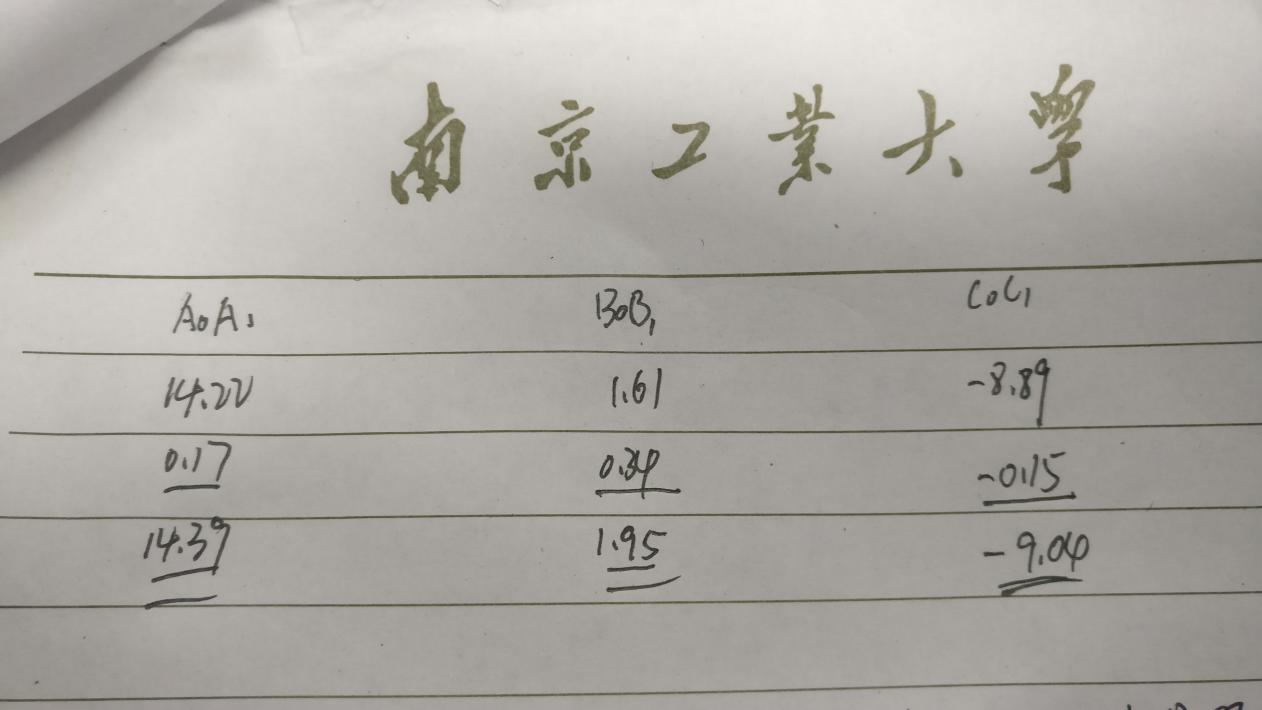 南京工业大学
A₀A₁ B₀B₁ C₀C₁
14.22 1.61 -8.89
0.17 0.34 -0.15
14.39 1.95 -9.04